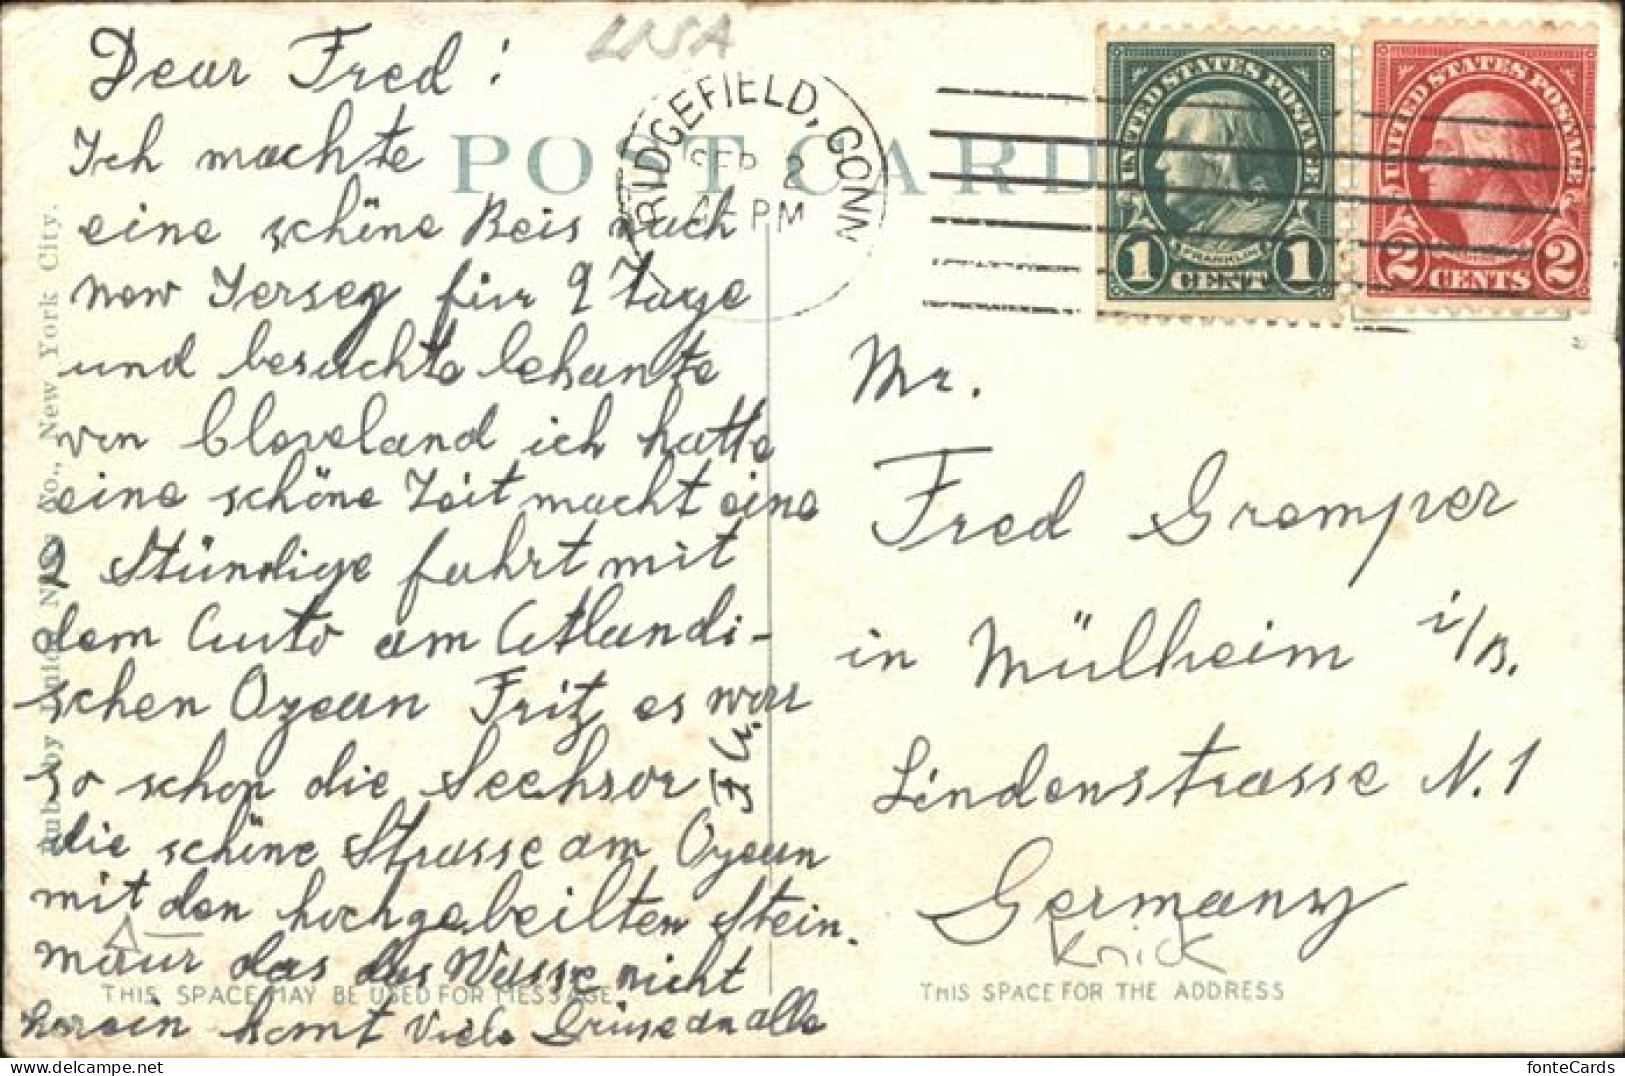 USA
Dear Fred!
Ich machte
eine schöne Reis nach
new Jersey für 9 Tage
und besuchte bekannte
von Cleveland ich hatte
eine schöne Zeit macht eine
2 Stündige fahrt mit
dem Auto am Atlandi-
schen Ozean Fritz es war
so schon die
die schöne Strasse am Ozean
mit den hochgebeilten Stein.
mauer das das Wasse nicht
herein komt Viele Grüse an alle
F. G.
POST CARD
RIDGEFIELD, CONN
SEP 2
PM
UNITED STATES POSTAGE
FRANKLIN
1 CENT 1
UNITED STATES POSTAGE
2 CENTS 2
Mr.
Fred Gremper
in Mülheim i/B.
Lindenstrasse N. 1
Germany
Knick
THIS SPACE MAY BE USED FOR MESSAGE
THIS SPACE FOR THE ADDRESS
Co., New York City.
fonteCards